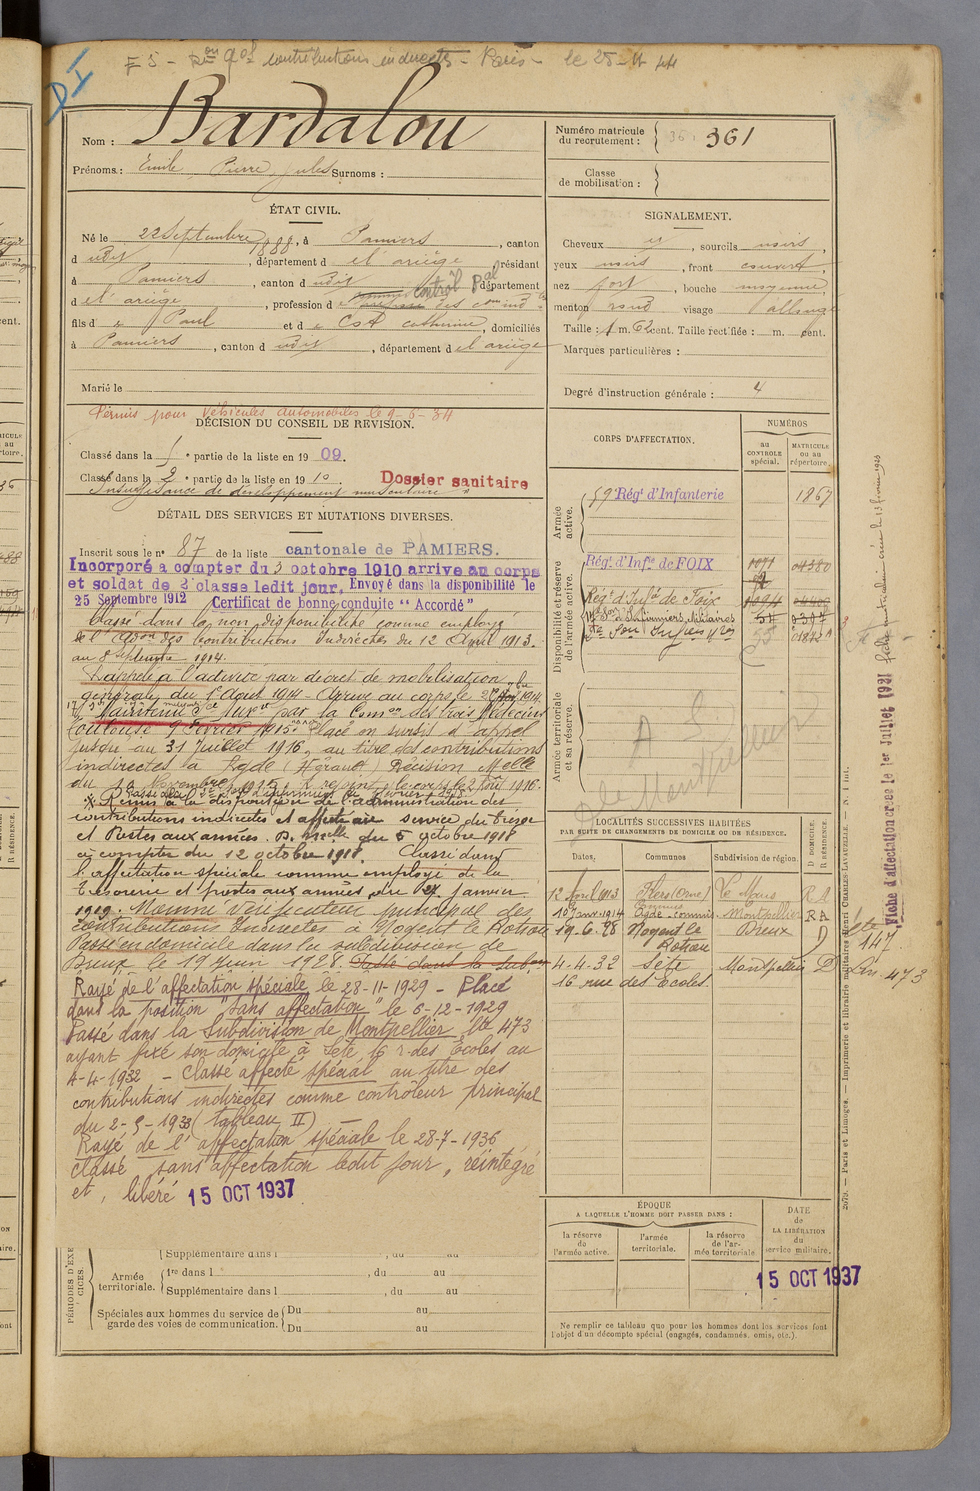 Contributions indirectes - Paris - le 25-
D I
Nom : Bardalou
Prénoms : Emile, Pierre, Jules Surnoms :
Numéro matricule du recrutement : 361
Classe de mobilisation :
ÉTAT CIVIL.
Né le 22 Septembre 1888, à Pamiers, canton
d udit, département d e l'ariège résidant
à Pamiers, canton d udit département
d e l'ariège, profession d
Control pal
fils d e Paul et d e Catherine, domiciliés
à Pamiers, canton d udit, département d e l'ariège
Marié le
SIGNALEMENT.
Cheveux , sourcils noirs,
yeux noirs, front couvert,
nez fort, bouche moyenne,
menton rond visage allongé
Taille : 1 m. 62 cent. Taille rectifiée : m. cent.
Marques particulières :
Degré d'instruction générale : 4
Permis pour Véhicules Automobiles le 9-6-34
DÉCISION DU CONSEIL DE REVISION.
Classé dans la 1e partie de la liste en 1909.
Classé dans la 2e partie de la liste en 1910
Dossier sanitaire
Insuffisance de développement musculaire
DÉTAIL DES SERVICES ET MUTATIONS DIVERSES.
Inscrit sous le n° 87 de la liste cantonale de PAMIERS.
Incorporé a compter du 3 octobre 1910 arrive au corps
et soldat de 2e classe ledit jour. Envoyé dans la disponibilité le
25 Septembre 1912 Certificat de bonne conduite "Accordé"
Classé dans la non disponibilité comme employé
de l'adon des Contributions Indirectes du 12 Avril 1913
au 8 Septembre 1914.
Rappelé à l'activité par décret de mobilisation
générale du 1er Août 1914 - Arrivé au corps le 1914
Maintenu Sce Auxre par la Comon des trois Médecins
Toulouse 9 Février 1915. Placé en sursis d'appel
jusqu'au 31 Juillet 1916, au titre des contributions
indirectes à Agde (Hérault) Décision Melle
du Novembre 1915. A rejoint le corps le 2 Août 1916.
Remis à la disposition de l'administration des
contributions indirectes et affecté au service du trésor
et Postes aux armées. D. Melle du 5 octobre 1918
à compter du 12 octobre 1918. Classé dans
l'affectation spéciale comme employé de la
Trésorerie et postes aux armées, du 27 janvier
1919. Nommé Vérificateur principal des
Contributions Indirectes à Nogent le Rotrou
Passé en domicile dans la subdivision de
Dreux le 19 juin 1928. Passé dans la subon
Rayé de l'affectation spéciale le 28-11-1929 - Placé
dans la position "sans affectation" le 6-12-1929
Passé dans la Subdivision de Montpellier Lte 473
ayant fixé son domicile à Sète, 16 r. des Écoles au
4-4-1932 - Classé affecté spécial au titre des
contributions indirectes comme contrôleur principal
du 2-5-1933 (tableau II)
Rayé de l'affectation spéciale le 28-7-1936
classé sans affectation ledit jour, réintégré
et, libéré 15 OCT 1937
CORPS D'AFFECTATION.
NUMÉROS
au CONTROLE spécial.
MATRICULE ou au répertoire.
Armée active.
59e Régt d'Infanterie 1867
Disponibilité et réserve de l'armée active.
Régt d'Infie de FOIX 1071 04380
Régt d'Infie de Foix 1094
Armée territoriale et sa réserve.
A S
Montpellier
LOCALITÉS SUCCESSIVES HABITÉES
PAR SUITE DE CHANGEMENTS DE DOMICILE OU DE RÉSIDENCE.
Dates. Communes Subdivision de région. D DOMICILE. R RÉSIDENCE.
12 Avril 1913 Flers (Orne) Le Mans R A
10 Janv 1914 Agde Montpellier R A
19-6-28 Nogent le Rotrou Dreux D
4-4-32 Sète Montpellier D
16 rue des Ecoles
Lte 147
Lin 473
Fiche matriculaire créée le 13 février 1923
Fiche d'affectation créée le 1er Juillet 1931
2079. — Paris et Limoges. — Imprimerie et librairie militaires Henri CHARLES-LAVAUZELLE.
ÉPOQUE
A LAQUELLE L'HOMME DOIT PASSER DANS :
la réserve de l'armée active.
l'armée territoriale.
la réserve de l'armée territoriale
DATE de LA LIBÉRATION du service militaire.
15 OCT 1937
Ne remplir ce tableau que pour les hommes dont les services font
l'objet d'un décompte spécial (engagés, condamnés, omis, etc.).
PÉRIODES D'EXERCICES.
Supplémentaire dans l , du au
Armée territoriale.
1re dans l , du au
Supplémentaire dans l , du au
Spéciales aux hommes du service de garde des voies de communication.
Du au
Du au